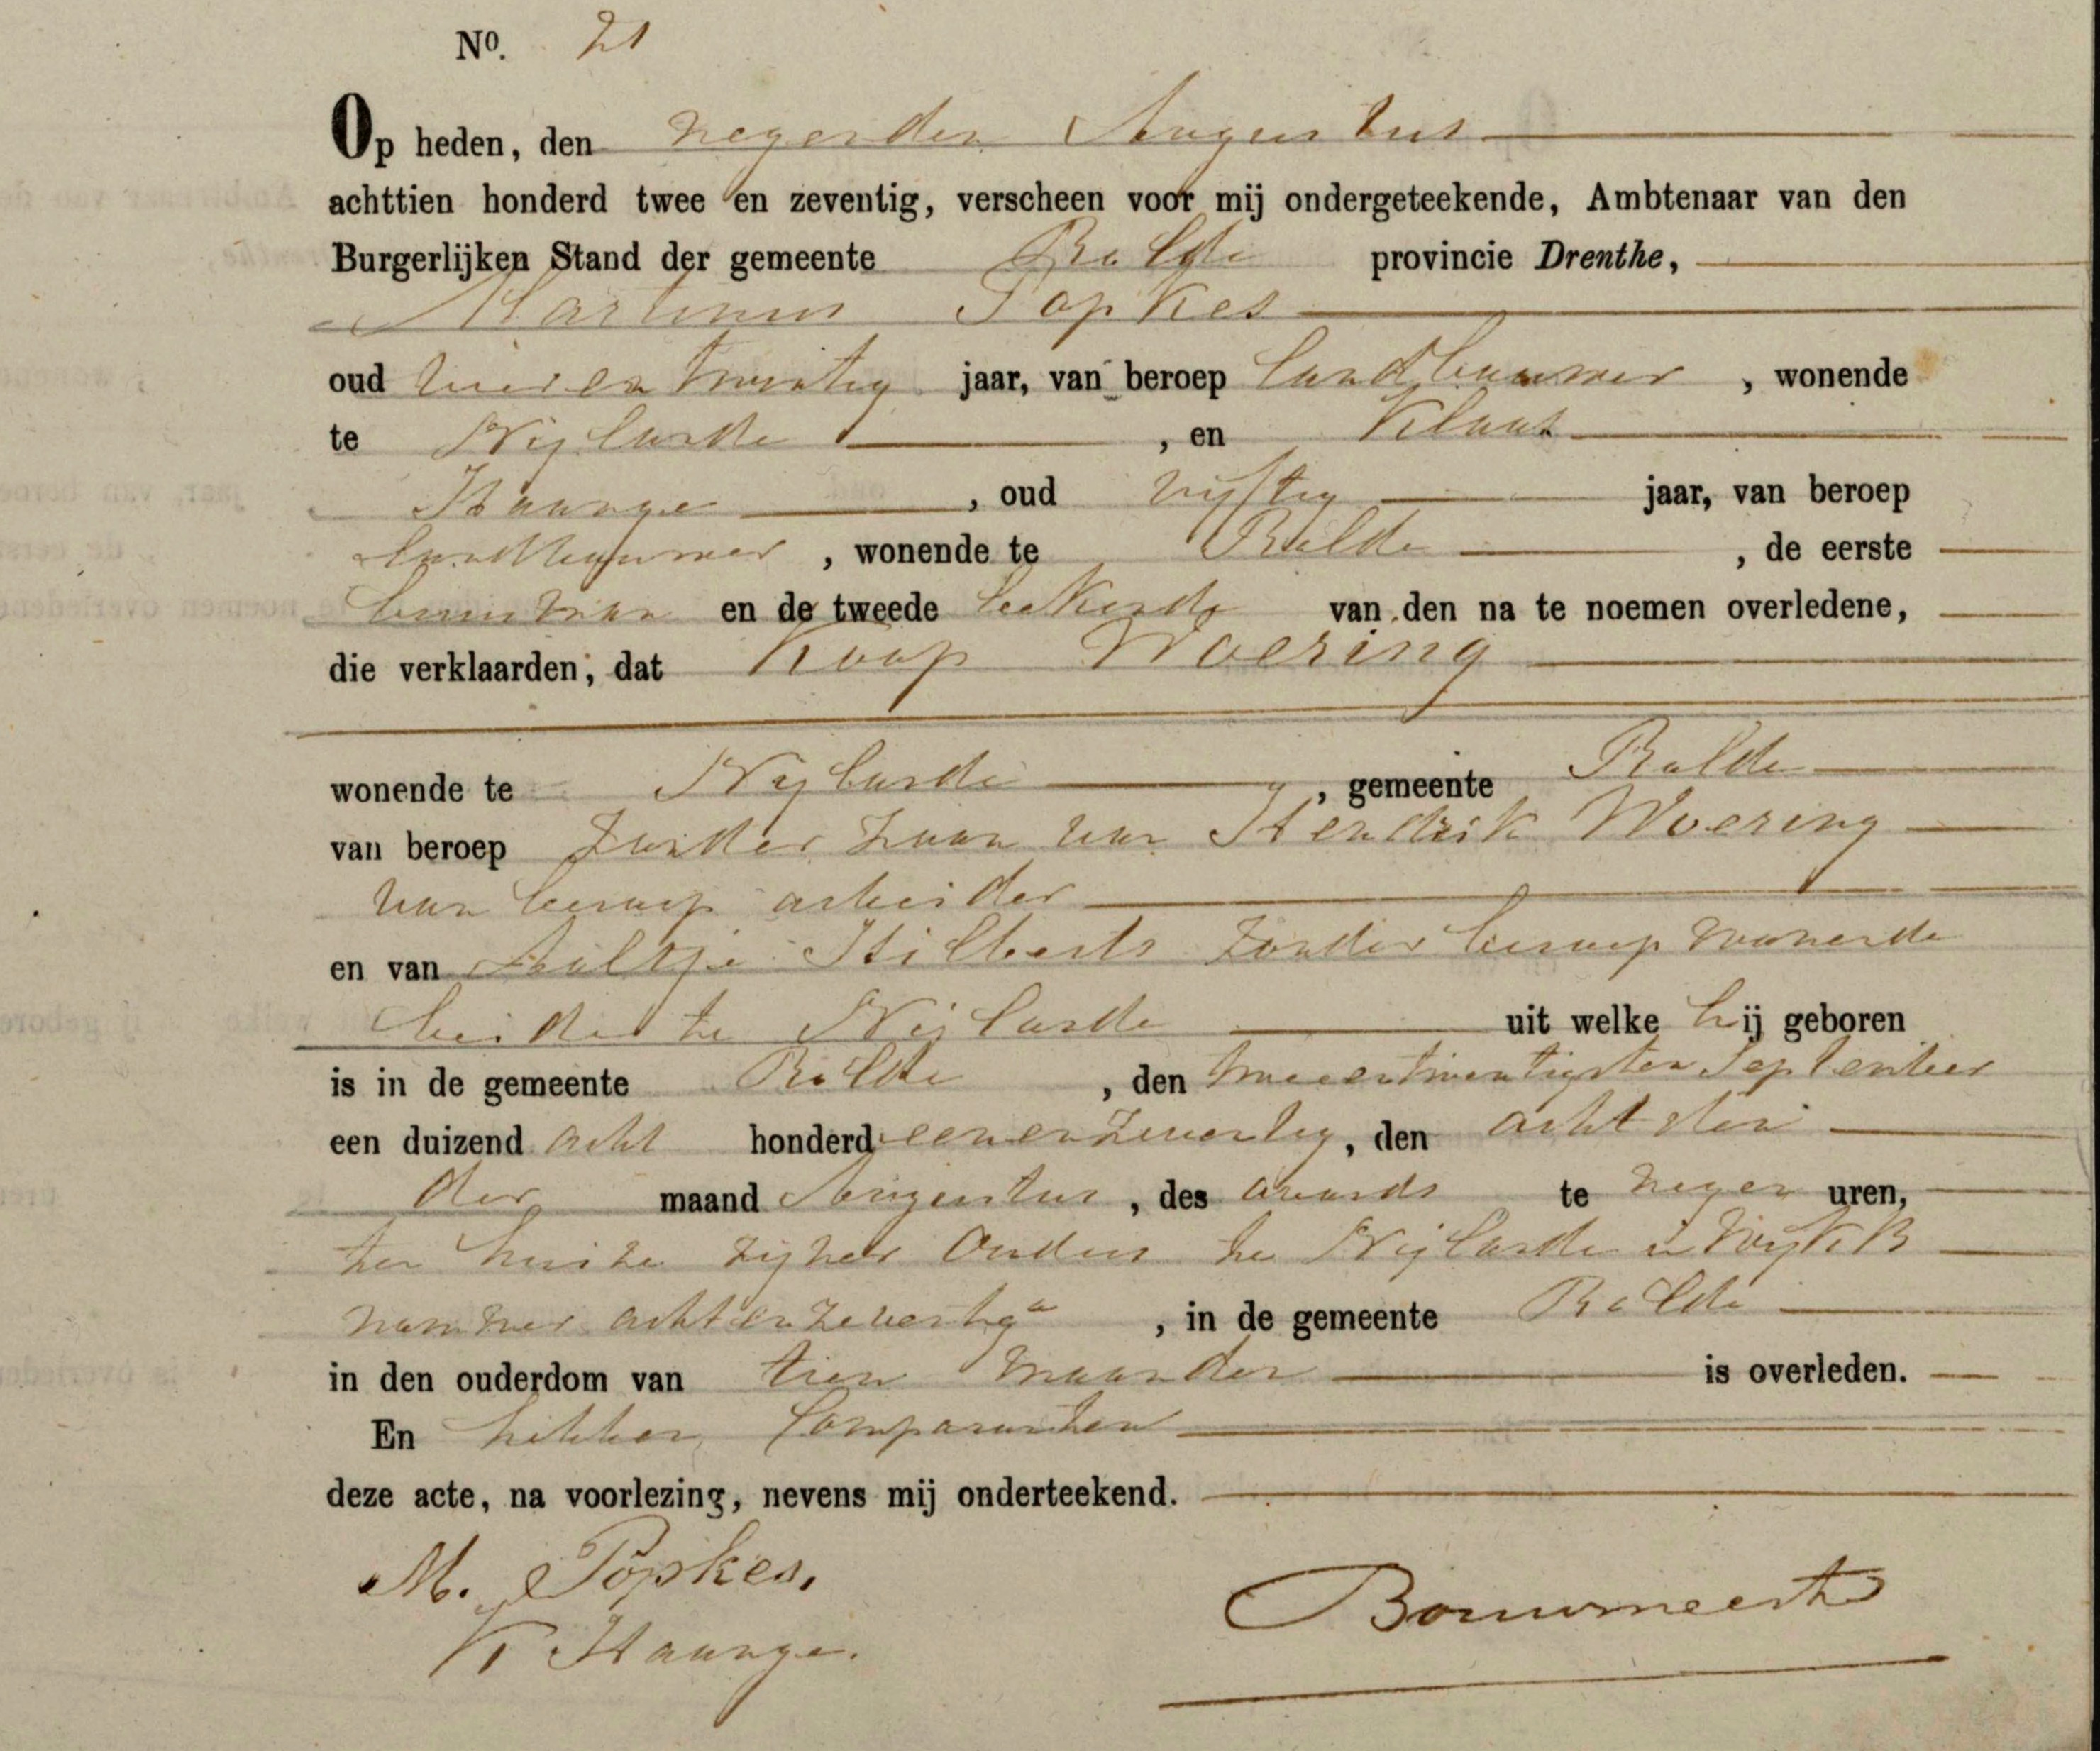 No. 21
Op heden, den negenden Augustus
achttien honderd twee en zeventig, verscheen voor mij ondergeteekende, Ambtenaar van den
Burgerlijken Stand der gemeente Rolde provincie Drenthe,
Martinus Popkes
oud vierentwintig jaar, van beroep landbouwer, wonende
te Nijlande, en Klaas
Haange, oud vijftig jaar, van beroep
landbouwer, wonende te Rolde, de eerste
buurman en de tweede bekende van den na te noemen overledene,
die verklaarden, dat Koop Woering
wonende te Nijlande, gemeente Rolde
van beroep zonder zoon van Hendrik Woering
van beroep arbeider
en van Aaltje Hilberts zonder beroep wonende
beiden te Nijlande uit welke hij geboren
is in de gemeente Rolde, den tweeentwintigsten September
een duizend acht honderd eenenzeventig, den achtsten
der maand Augustus, des avonds te negen uren,
ten huize zijner Ouders te Nijlande in Wijk B
nummer achtenzeventig a, in de gemeente Rolde
in den ouderdom van tien maanden is overleden.
En hebben Comparanten
deze acte, na voorlezing, nevens mij onderteekend.
M. Popkes.
K Haange.
Bouwmeester